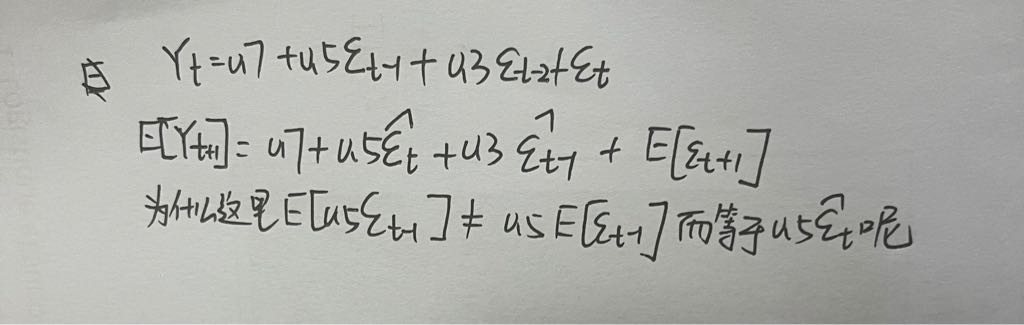 Yt=u7+u5εt-1+u3εt-2+εt
E[Yt+1]=u7+u5ε̂t+u3ε̂t-1+E[εt+1]
为什么这里E[u5εt-1]≠u5E[εt-1]而等于u5ε̂t呢